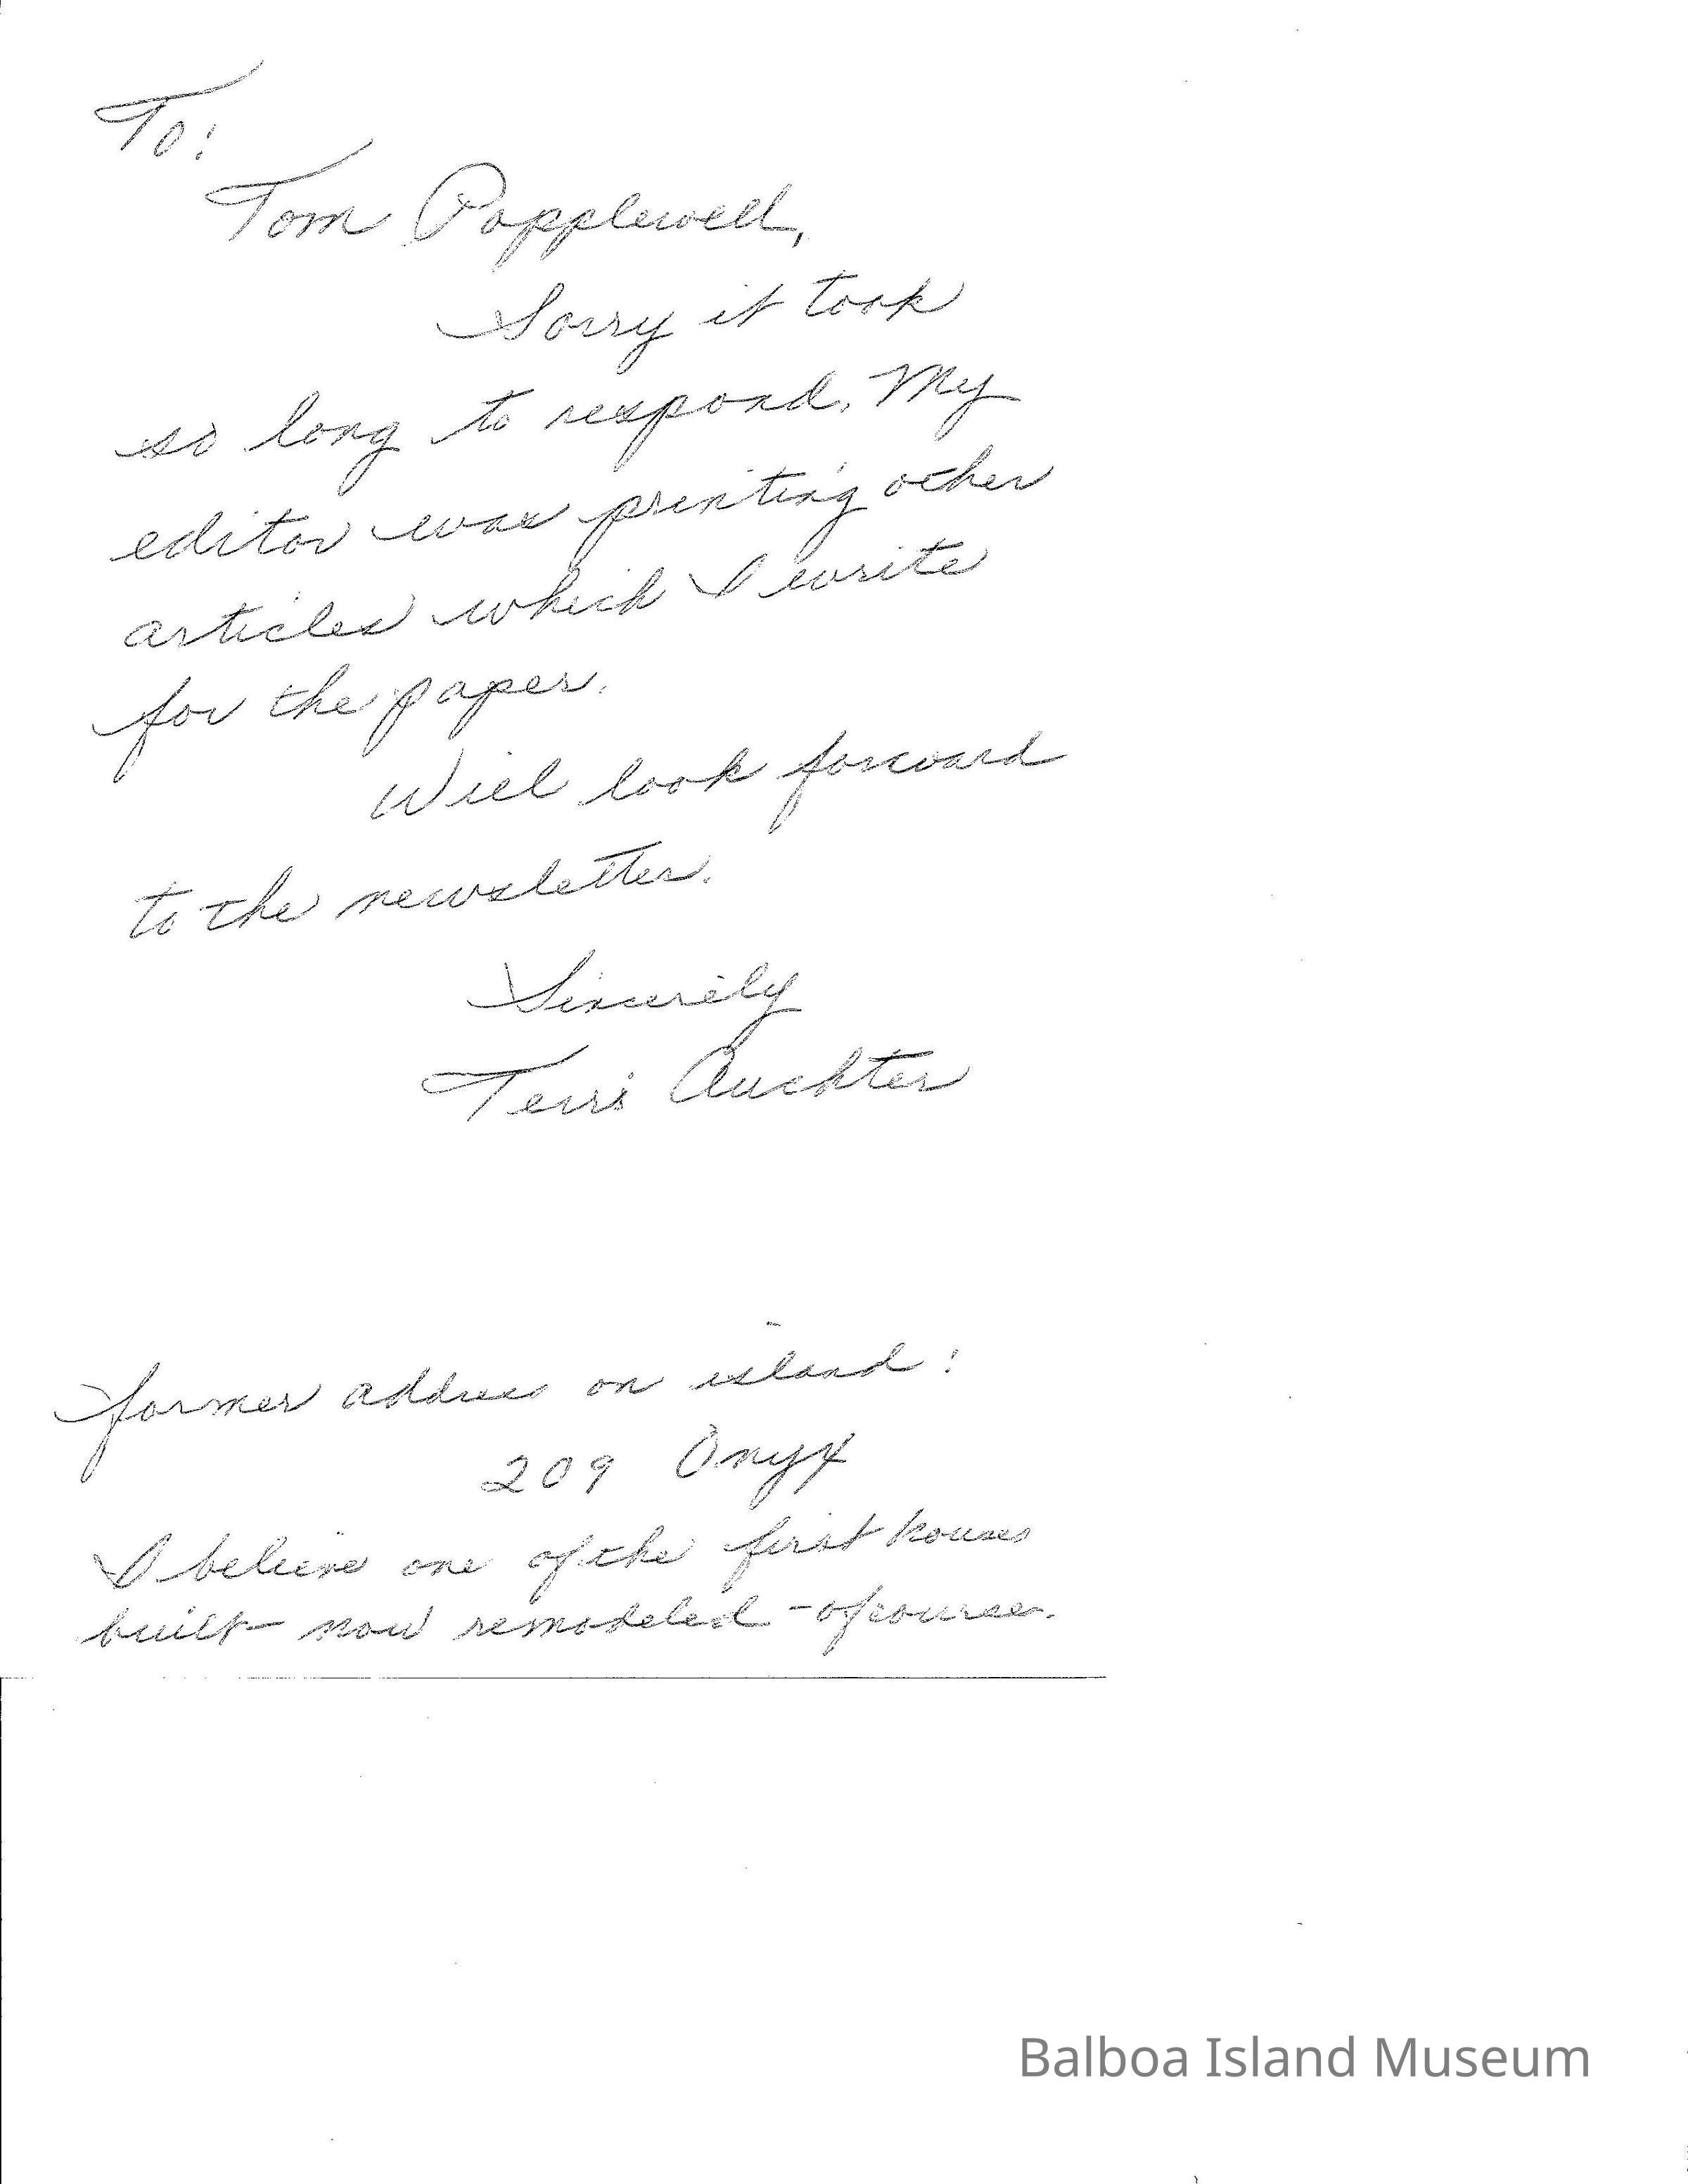 To:
Tom Popplewell,
Sorry it took
so long to respond. My
editor was printing other
articles which I write
for the paper.
Will look forward
to the newsletter.
Sincerely
Terri Auchter
former address on island:
209 Onyx
I believe one of the first houses
built- now remodeled - of course.
Balboa Island Museum